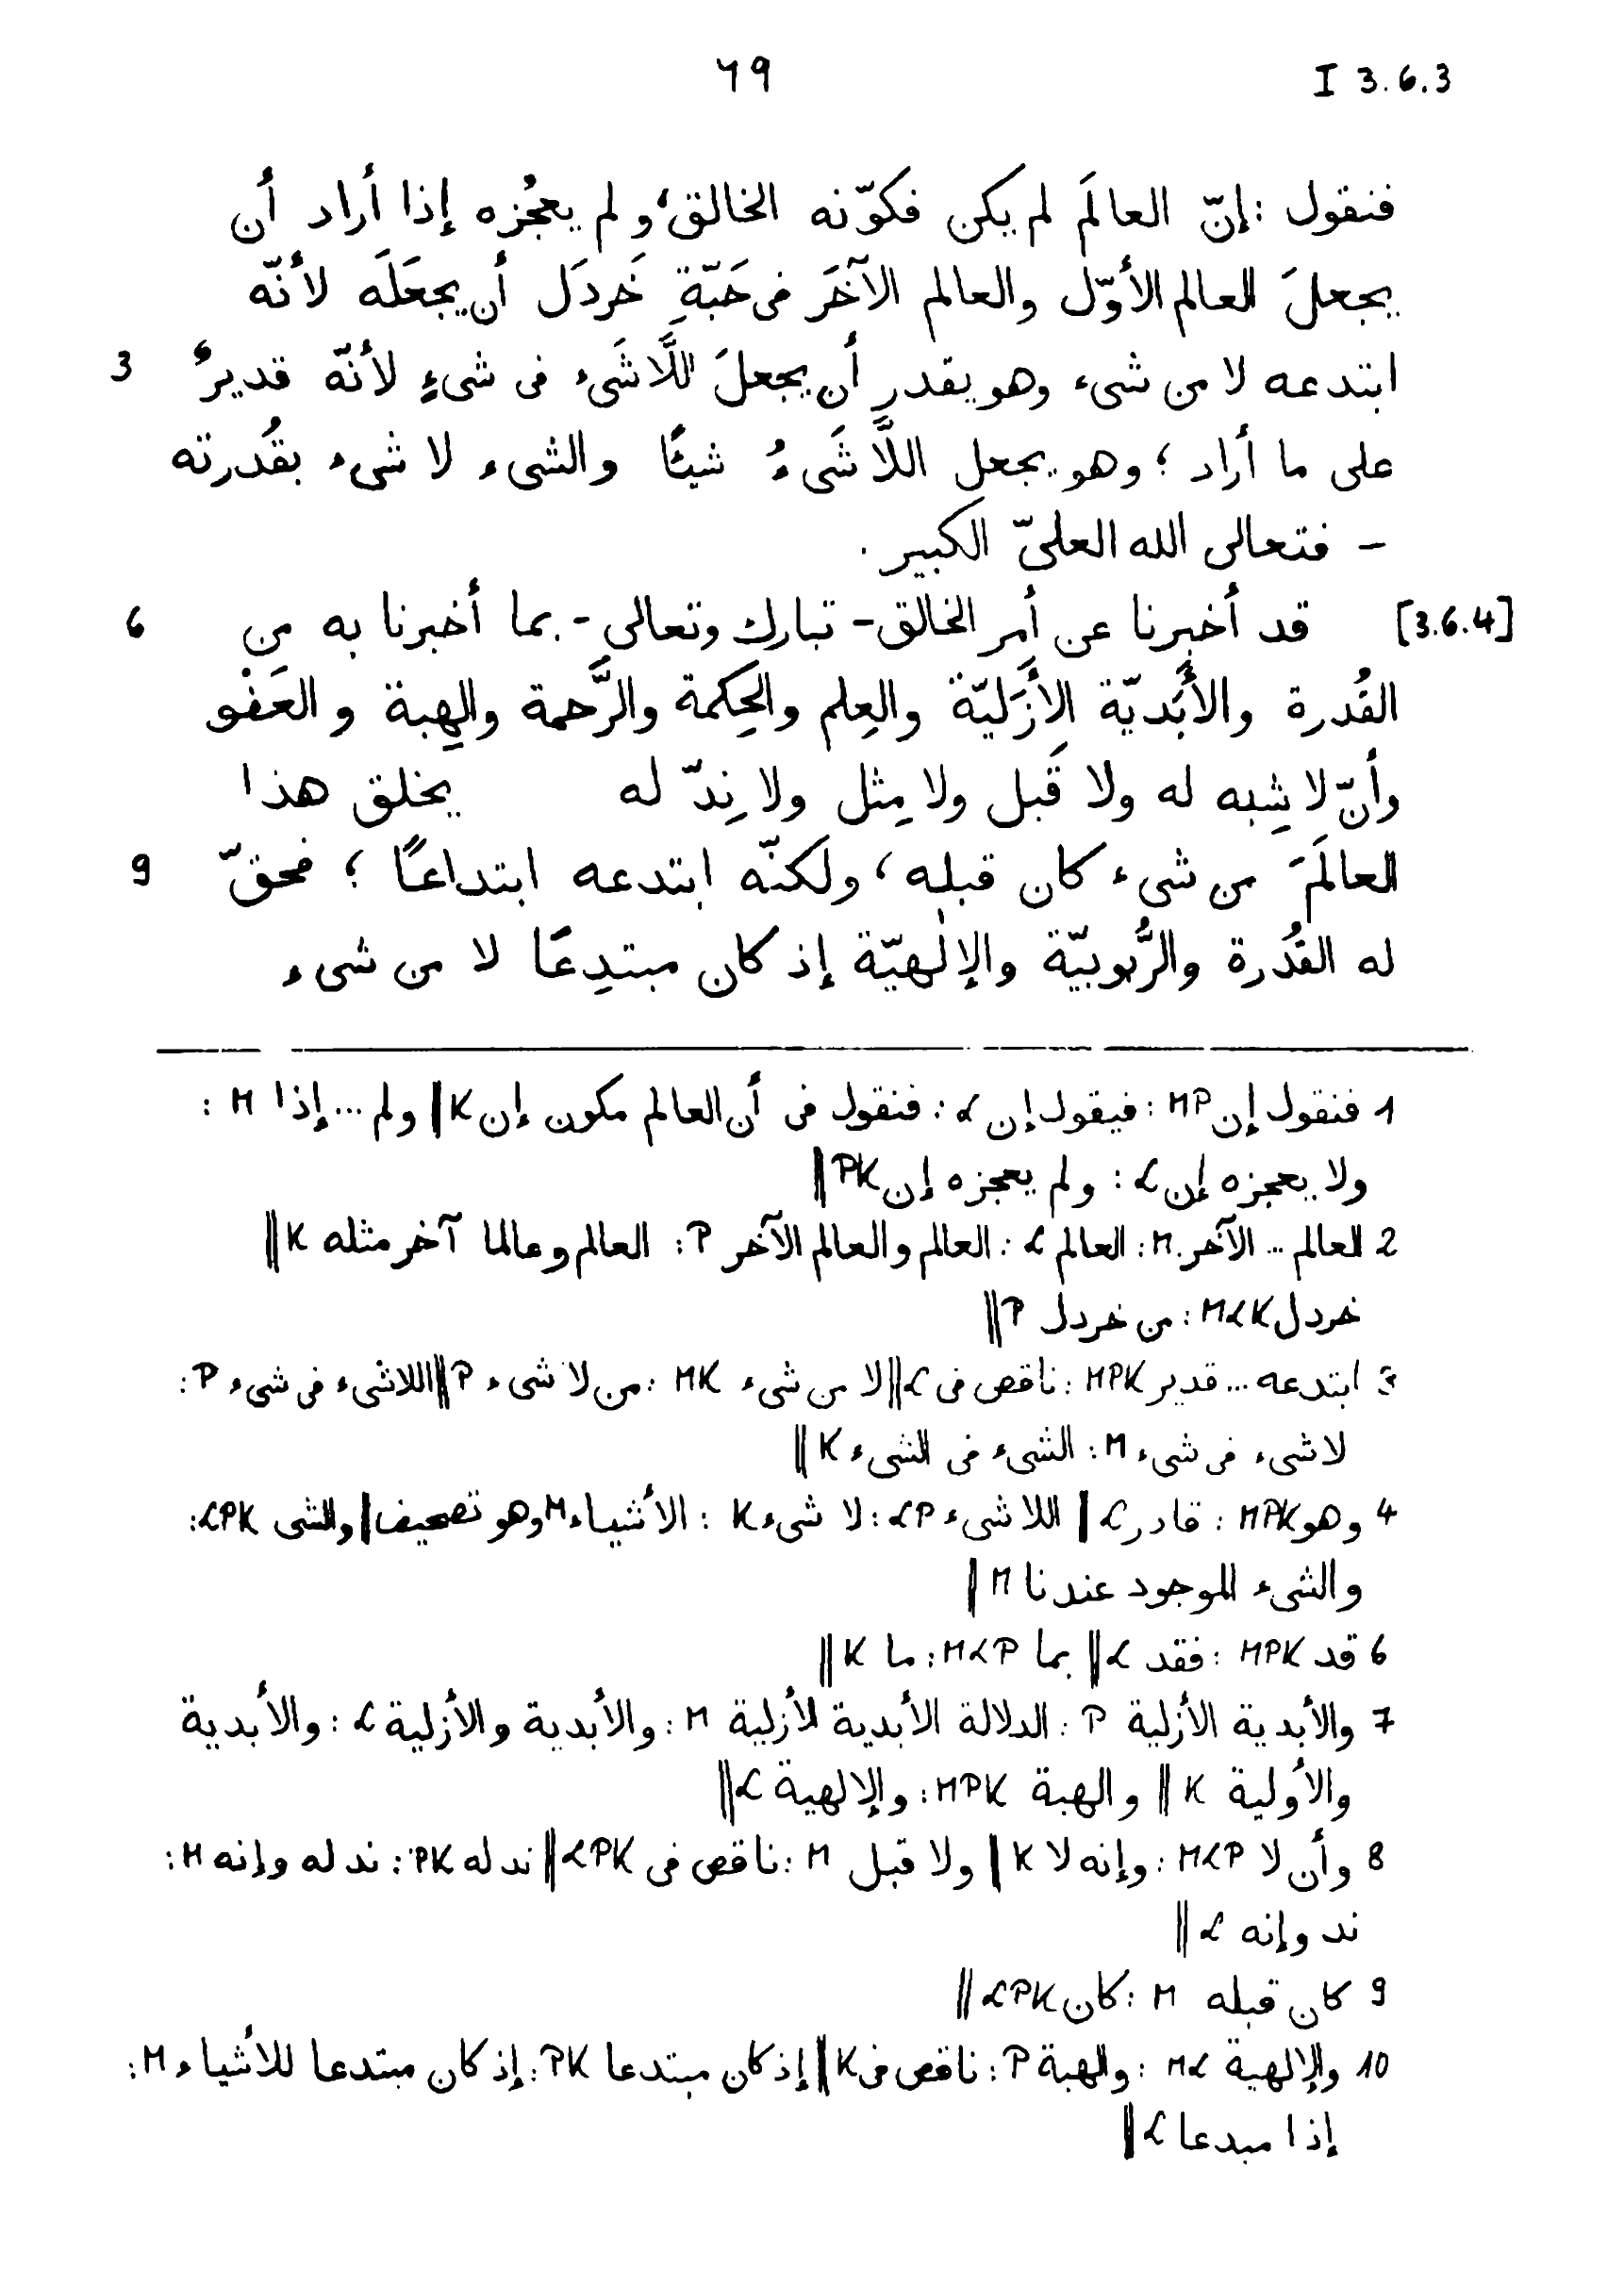 ٦٩ I 3.6.3
فنقول: إنّ العالَم لم يكن فكوّنه الخالق، ولم يعجُزه إذا أراد أن
يجعلَ العالم الأوّل والعالم الآخَر في حَبّةِ خَردَل أن يجعَلَه لأنّه
ابتدعه لا من شيء وهو يقدر أن يجعلَ اللَّاشَيء في شيءٍ لأنّه قديرٌ 3
على ما أراد؛ وهو يجعل اللَّاشَيءُ شيئًا والشيء لا شيء بقُدرته
– فتعالى الله العليّ الكبير.
[3.6.4] قد أخبرنا عن أمر الخالق - تبارك وتعالى - بما أخبرنا به من 6
القُدرة والأبَديّة الأزَليّة والعِلم والحِكمة والرَّحمة والهِبة والعَفْو
وأنّ لا شِبه له ولا قَبل ولا مِثل ولا نِدّ له يخلق هذا
العالَمَ من شيء كان قبله، ولكنّه ابتدعه ابتداعًا؛ فحقّ 9
له القُدرة والرُّبوبيّة والإلٰهيّة إذ كان مبتدِعًا لا من شيء
1 فنقول إن MP: فيقول إن L: فنقول في أن العالم مكون إن K‖ ولم ... إذا M:
ولا يعجزه إن L: ولم يعجزه إن PK‖
2 العالم ... الآخر M: العالم L: العالم والعالم الآخر P: العالم وعالما آخر مثله K‖
خردل MLK: من خردل P‖
3 ابتدعه ... قدير MPK: ناقص في L‖ لا من شيء MK: من لا شيء P‖ اللاشيء في شيء P:
لا شيء في شيء M: الشيء في الشيء K‖
4 وهو MPK: قادر L‖ اللاشيء LP: لا شيء K: الأشياء M وهو تصحيف‖ والشي LPK:
والشيء الموجود عندنا M‖
6 قد MPK: فقد L‖ بما MLP: ما K‖
7 والأبدية الأزلية P: الدلالة الأبدية الأزلية M: والأبدية والأزلية L: والأبدية
والأولية K‖ والهبة MPK: والإلهية L‖
8 وأن لا MLP: وإنه لا K‖ ولا قبل M: ناقص في LPK‖ ند له PK: ند له وإنه M:
ند وإنه L‖
9 كان قبله M: كان LPK‖
10 والإلهية ML: والهبة P: ناقص في K‖ إذ كان مبتدعا PK: إذ كان مبتدعا للأشياء M:
إذا مبدعا L‖